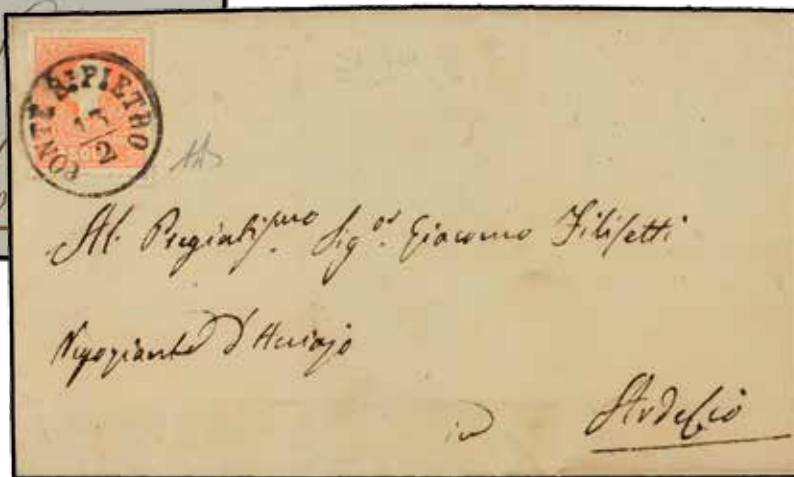 PONTE S. PIETRO
15/2
SOLDI
Al Pregiatis.mo Sig.or Giacomo Filisetti
Negoziante d'Acciajo
in Ardesio